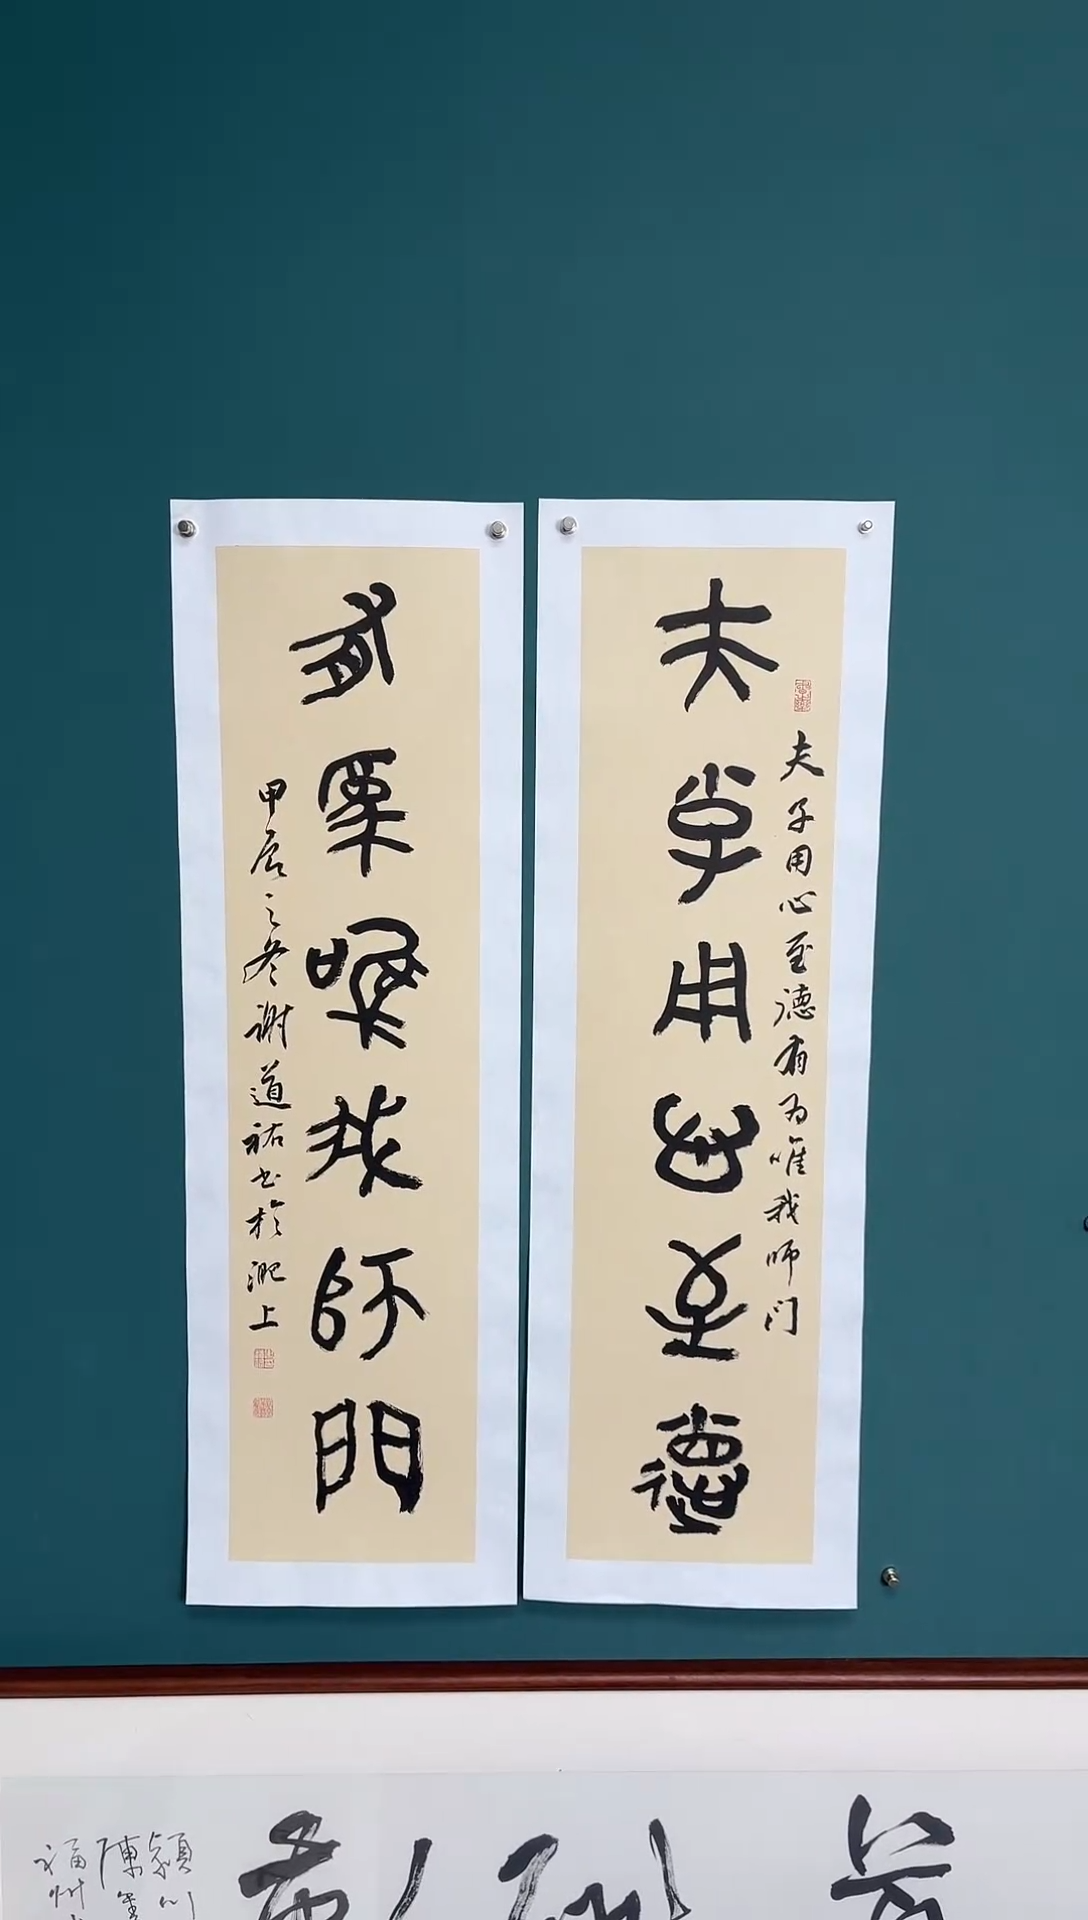 夫子用心至德
夫子用心至德有为唯我师门
有为唯我师門
甲辰之冬谢道祐书於淝上
福州
陳
穎川